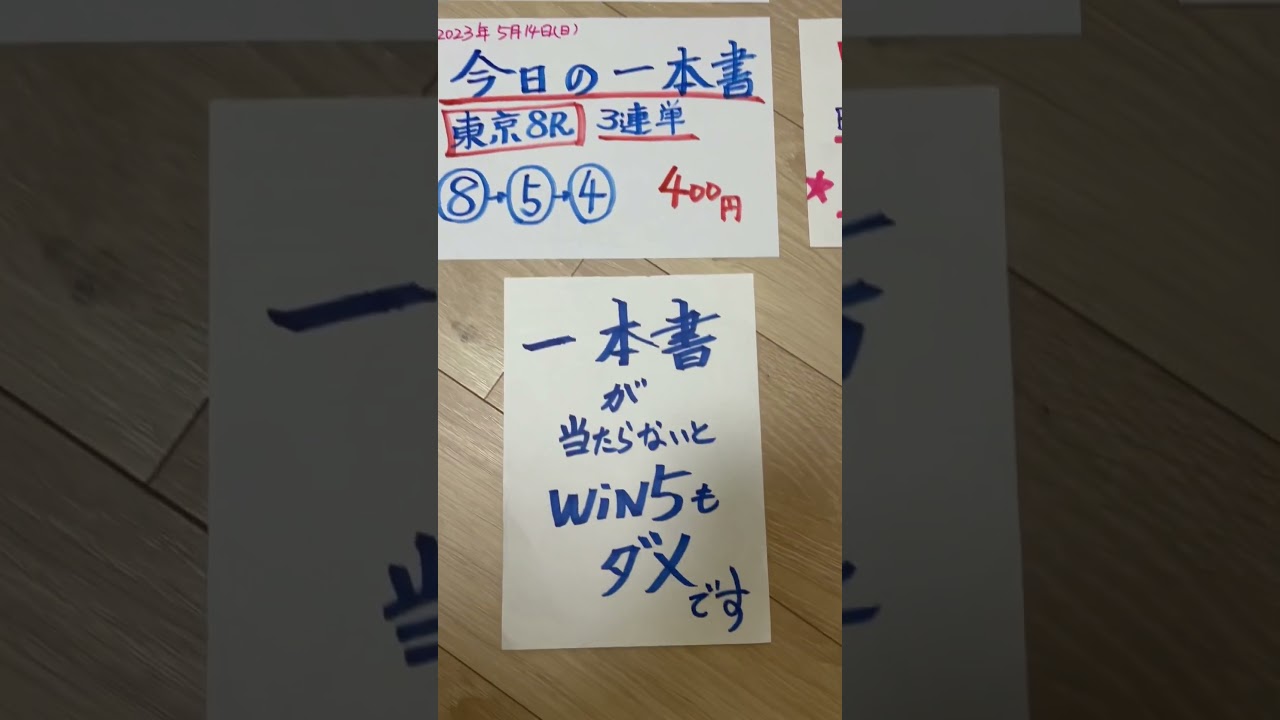 2023年 5月14日(日)
今日の一本書
東京8R 3連単
⑧→⑤→④ 400円
一本書
が
当たらないと
WiN5も
ダメ
です